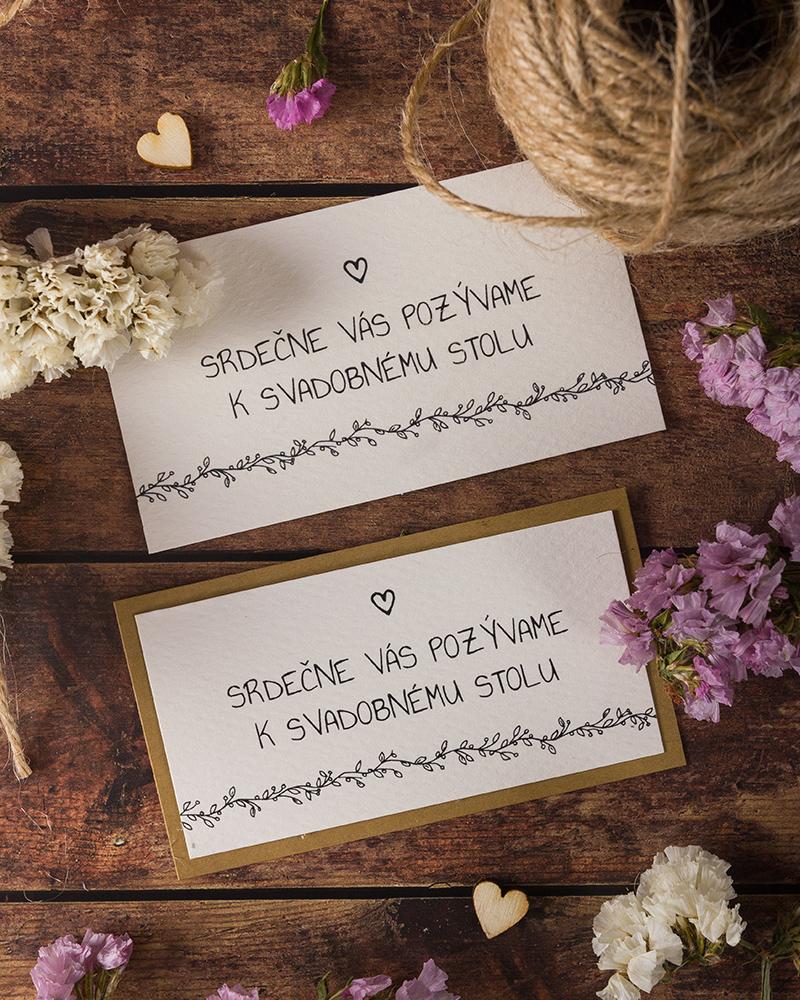 SRDEČNE VÁS POZÝVAME
K SVADOBNÉMU STOLU
SRDEČNE VÁS POZÝVAME
K SVADOBNÉMU STOLU